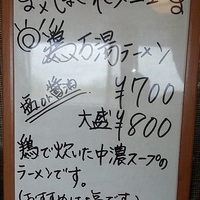 鶏白湯ラーメン
塩or醤油 ¥700
大盛 ¥800
鶏で炊いた中濃スープの
ラーメンです。
(おすすめは塩です)